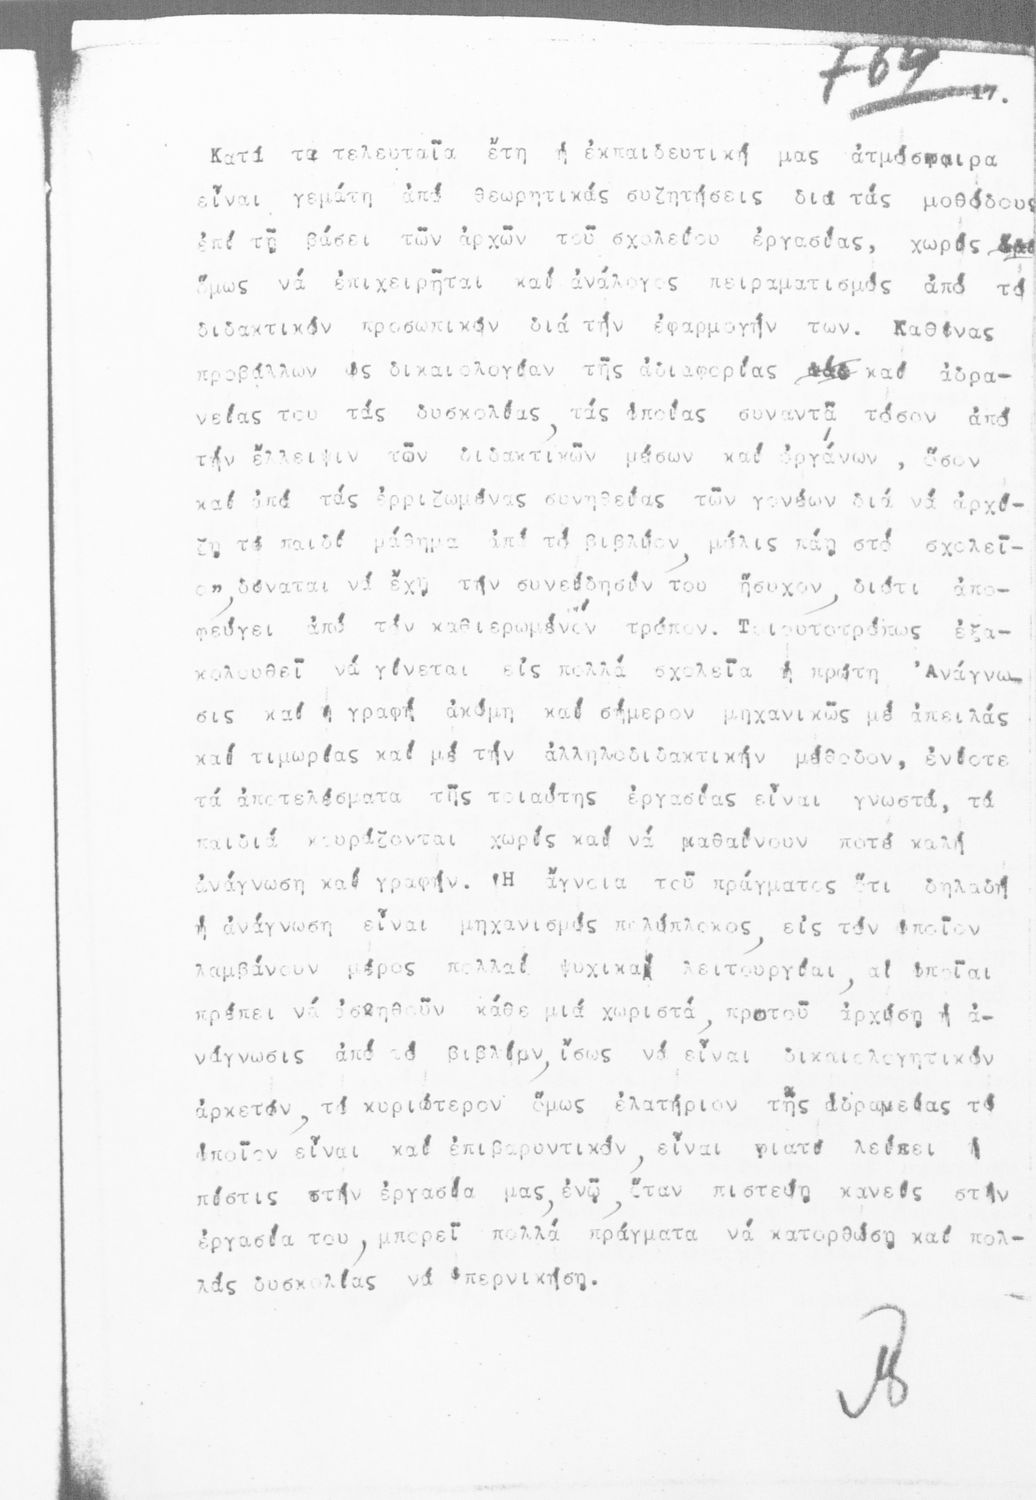 764
17.
Κατά τα τελευταῖα ἔτη ἡ ἐκπαιδευτική μας ἀτμόσφαιρα
εἶναι γεμάτη ἀπό θεωρητικάς συζητήσεις διά τάς μοθόδους
ἐπί τῇ βάσει τῶν ἀρχῶν τοῦ σχολείου ἐργασίας, χωρίς
ὅμως νά ἐπιχειρῆται καί ἀνάλογος πειραματισμός ἀπό τό
διδακτικόν προσωπικόν διά τήν ἐφαρμογήν των. Καθένας
προβάλλων ὡς δικαιολογίαν τῆς ἀδιαφορίας καί ἀδρα-
νείας του τάς δυσκολίας, τάς ὁποίας συναντᾷ τόσον ἀπό
τήν ἔλλειψιν τῶν διδακτικῶν μέσων καί ὀργάνων , ὅσον
καί ἀπό τάς ἐρριζωμένας συνηθείας τῶν γονέων διά νά ἀρχί-
ζῃ τό παιδί μάθημα ἀπό τό βιβλίον, μόλις πάῃ στό σχολεῖ-
ο", δύναται νά ἔχῃ τήν συνείδησίν του ἥσυχον, διότι ἀπο-
φεύγει ἀπό τόν καθιερωμένον τρόπον. Τοιουτοτρόπως ἐξα-
κολουθεῖ νά γίνεται εἰς πολλά σχολεῖα ἡ πρώτη Ἀνάγνω-
σις καί ἡ γραφή ἀκόμη καί σήμερον μηχανικῶς μέ ἀπειλάς
καί τιμωρίας καί μέ τήν ἀλληλοδιδακτικήν μέθοδον, ἐνίοτε
τά ἀποτελέσματα τῆς τοιαύτης ἐργασίας εἶναι γνωστά, τά
παιδιά κουράζονται χωρίς καί νά μαθαίνουν ποτέ καλή
ἀνάγνωση καί γραφήν. Ἡ ἄγνοια τοῦ πράγματος ὅτι δηλαδή
ἡ ἀνάγνωση εἶναι μηχανισμός πολύπλοκος, εἰς τόν ὁποῖον
λαμβάνουν μέρος πολλαί ψυχικαί λειτουργίαι, αἱ ὁποῖαι
πρέπει νά ἀσκηθοῦν κάθε μιά χωριστά, προτοῦ ἀρχίσῃ ἡ ἀ-
νάγνωσις ἀπό τό βιβλίον, ἴσως νά εἶναι δικαιολογητικόν
ἀρκετόν, τό κυριώτερον ὅμως ἐλατήριον τῆς ἀδρανείας τό
ὁποῖον εἶναι καί ἐπιβαρυντικόν, εἶναι γιατί λείπει ἡ
πίστις στήν ἐργασία μας, ἐνῷ, ὅταν πιστεύῃ κανείς στήν
ἐργασία του, μπορεῖ πολλά πράγματα νά κατορθώσῃ καί πολ-
λάς δυσκολίας νά ὑπερνικήσῃ.